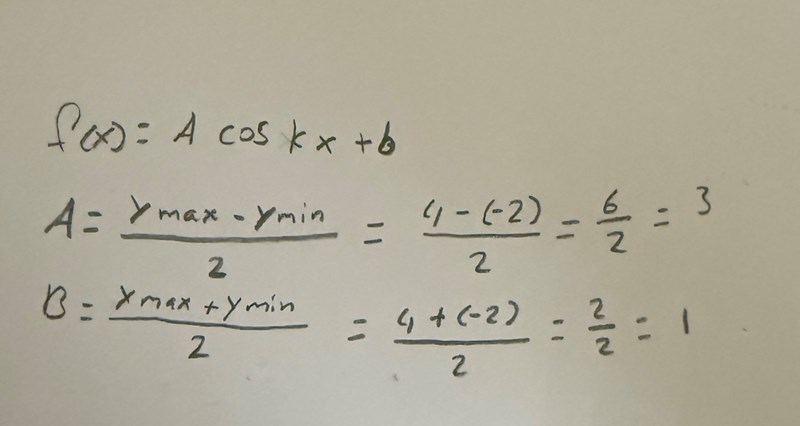 f(x) = A cos kx + b
A = (y max - y min) / 2 = (4 - (-2)) / 2 = 6/2 = 3
B = (y max + y min) / 2 = (4 + (-2)) / 2 = 2/2 = 1